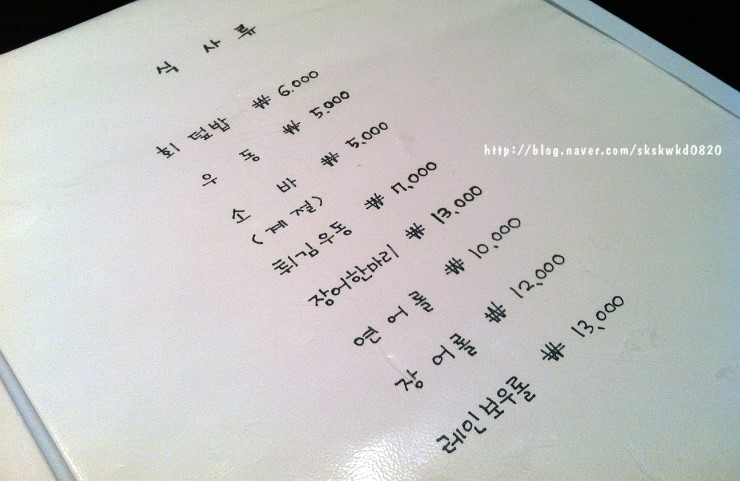 식 사 류
회 덮밥 ₩ 6.000
우 동 ₩ 5.000
소 바 ₩ 5.000
튀김우동 ₩ 7,000
장어한마리 ₩ 13,000
연 어 롤 ₩ 10,000
장 어 롤 ₩ 12,000
레인보우롤 ₩ 13,000
http://blog.naver.com/skskwkd0820